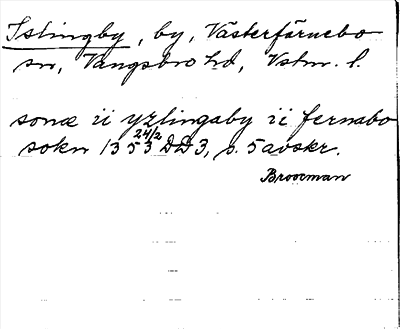 Islingby, by, Västerfärnebo
sn, Vangsbro hd, Vstm. l.
sonæ ii yzlingaby ii fernabo
sokn 1353 24/2 DD 3, s. 5 avskr.
Brooeman